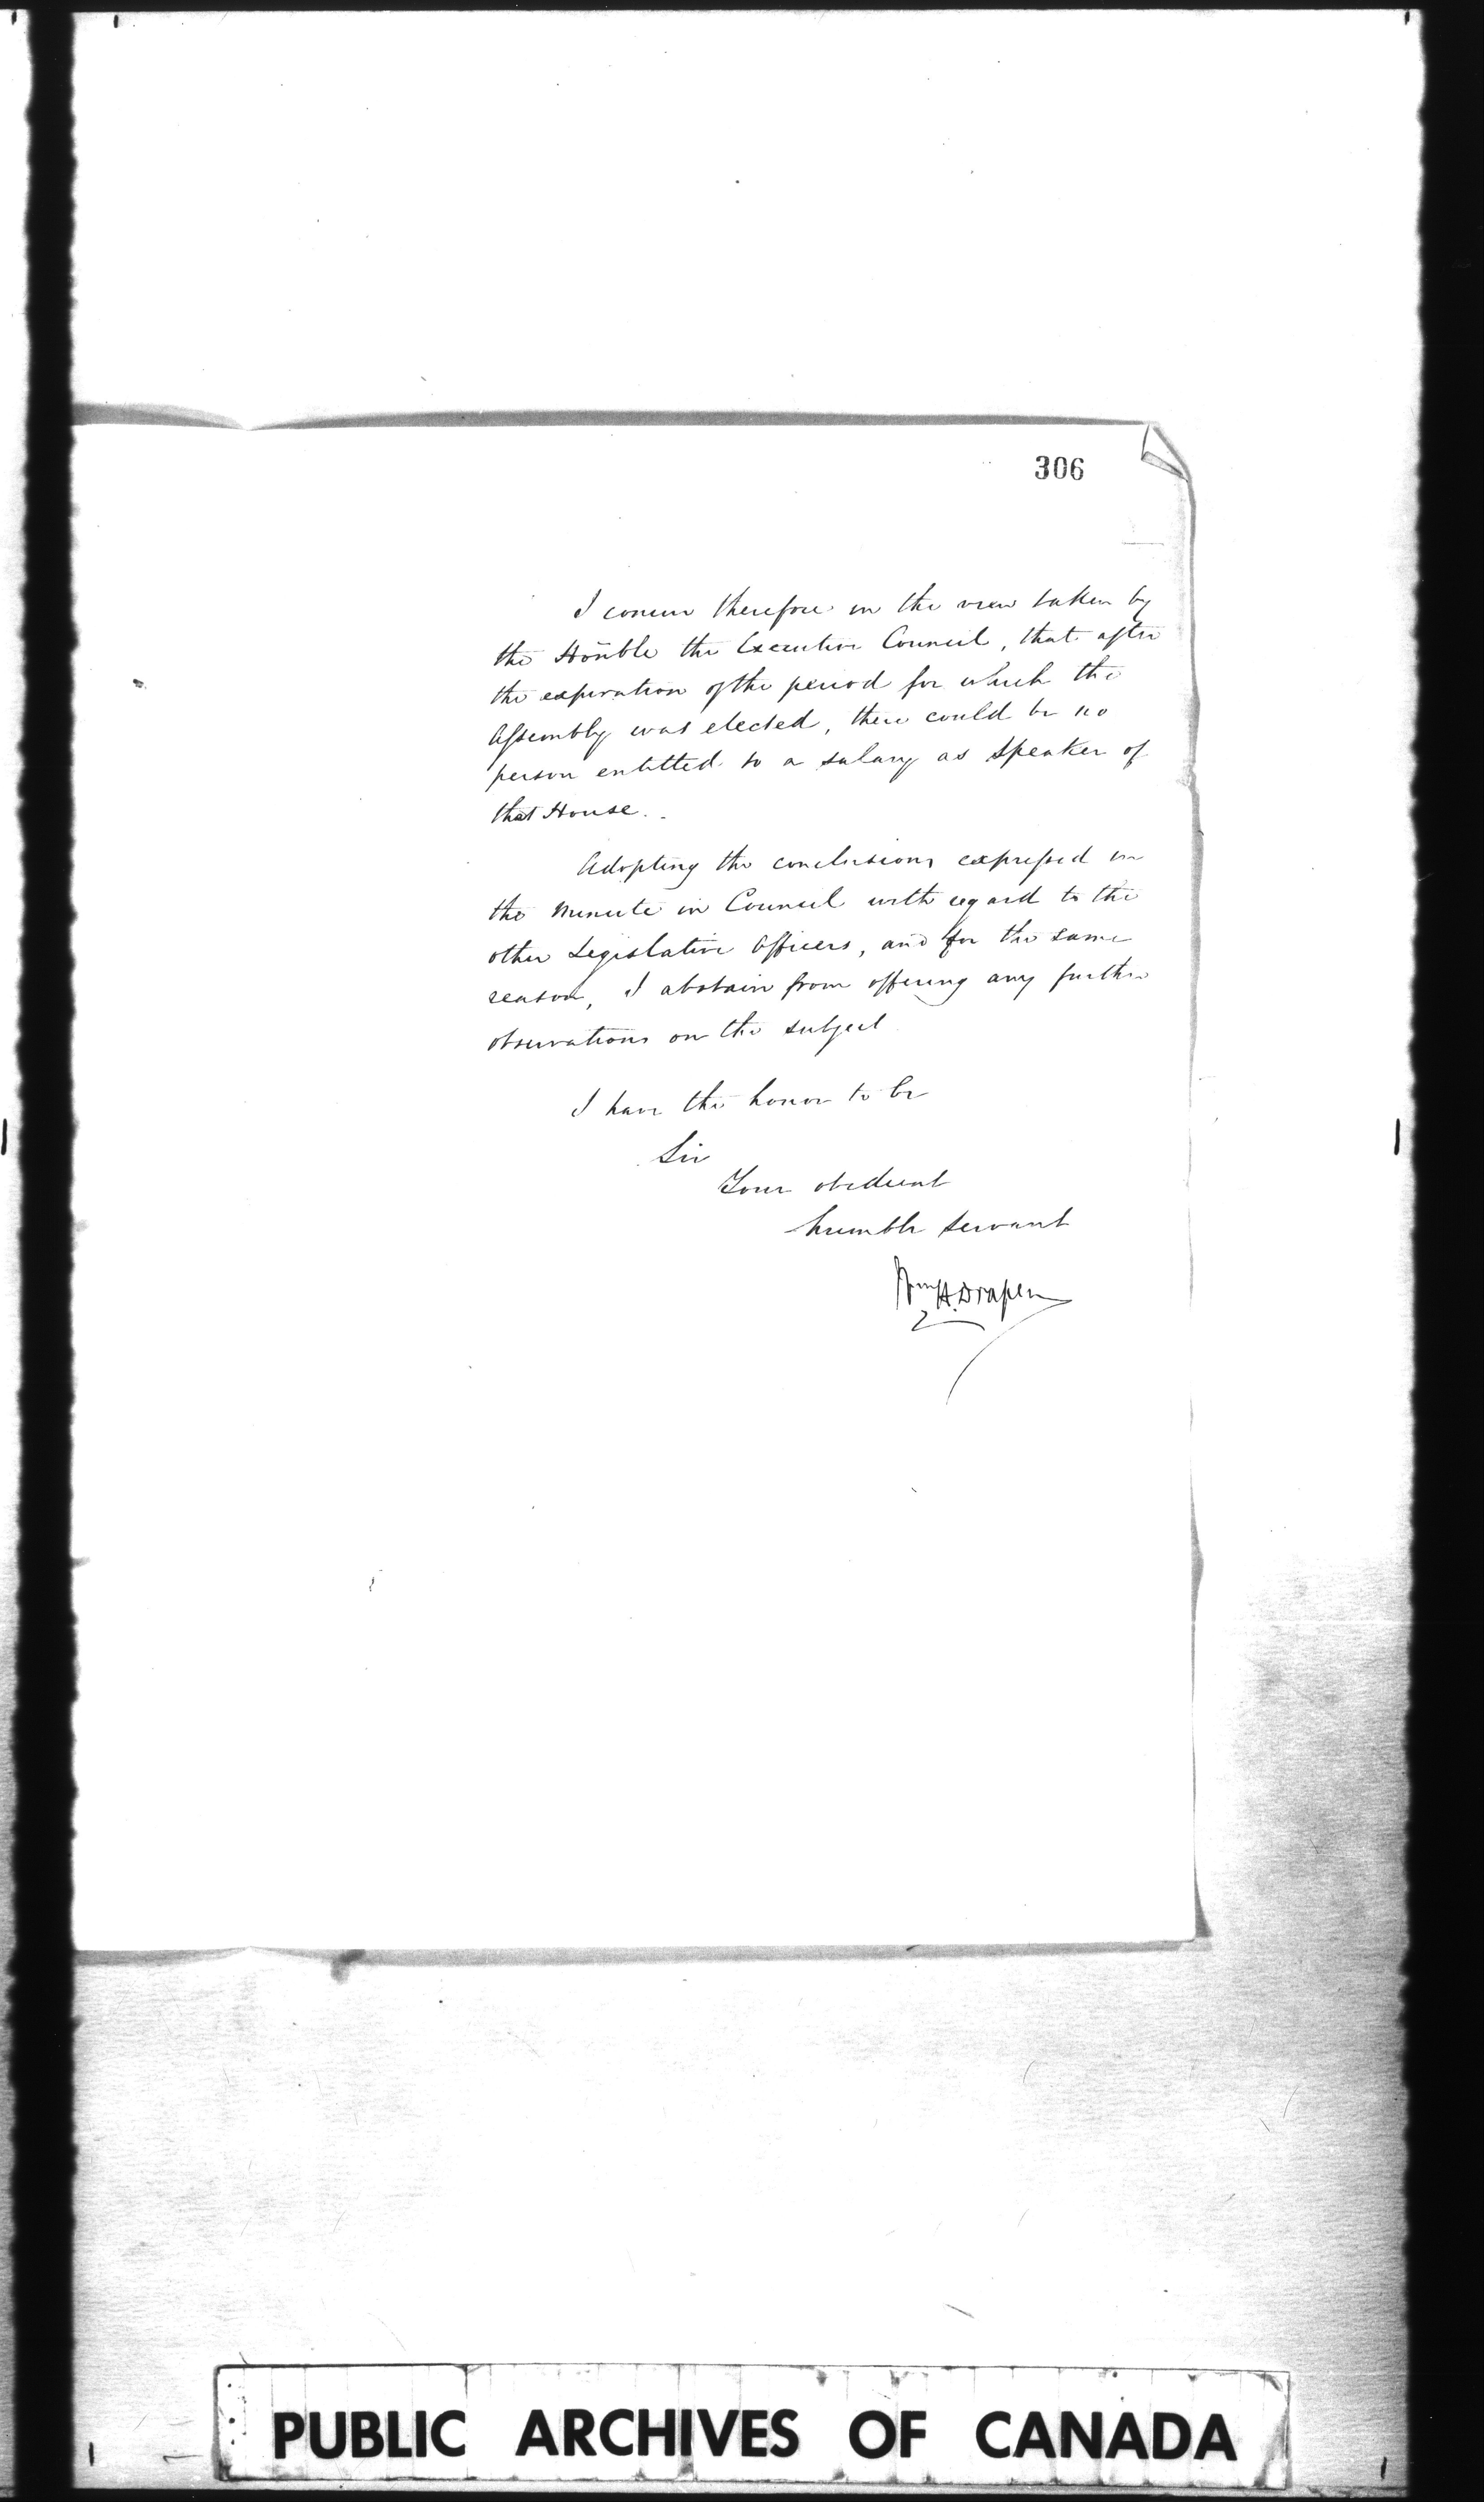 306
I concur therefore in the view taken by
the Honble the Executive Council, that after
the expiration of the period for which the
Assembly was elected, there could be no
person entitled to a salary as Speaker of
that House.
Adopting the conclusions expressed in
the Minute in Council with regard to the
other Legislative Officers, and for the same
reason, I abstain from offering any further
observations on the subject
I have the honor to be
Sir
Your obedient
humble servant
Wm H. Draper
PUBLIC ARCHIVES OF CANADA